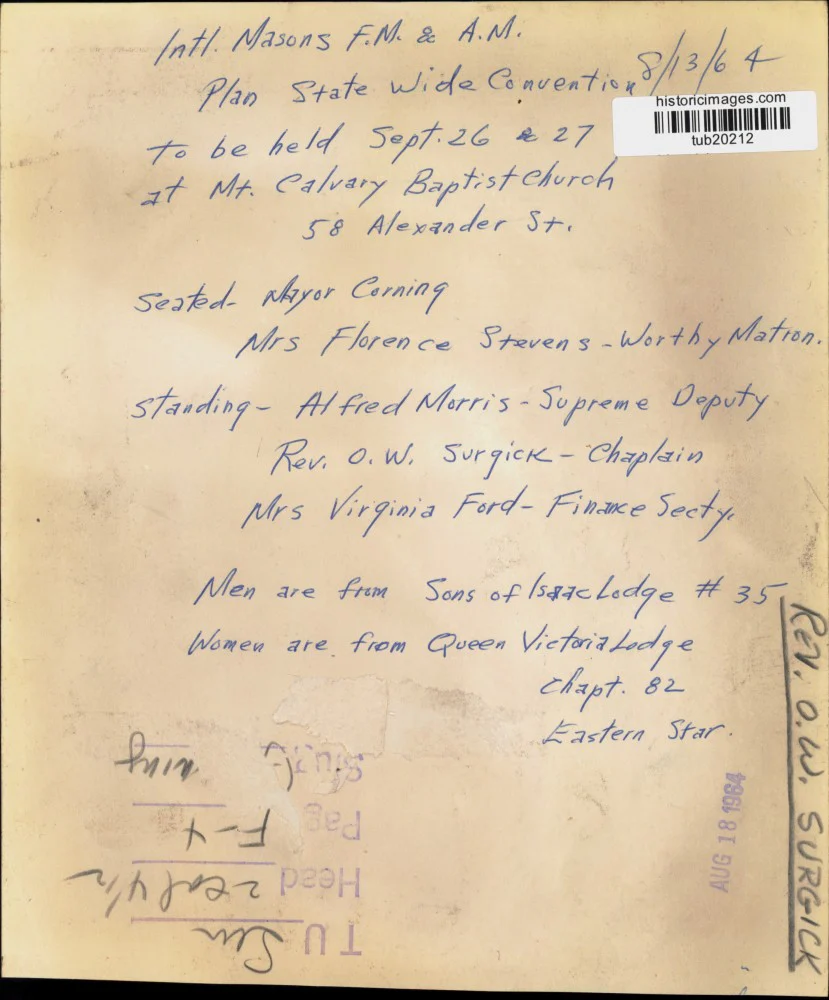 Intl. Masons F.M. & A.M.
8/13/64
Plan State Wide Convention
historicimages.com
tub20212
to be held Sept. 26 & 27
at Mt. Calvary Baptist Church
58 Alexander St.
Seated- Mayor Corning
Mrs Florence Stevens - Worthy Matron.
Standing - Alfred Morris - Supreme Deputy
Rev. O.W. Surgick - Chaplain
Mrs Virginia Ford - Finance Secty.
Men are from Sons of Isaac Lodge # 35
Women are from Queen Victoria Lodge
Chapt. 82
Eastern Star.
REV. O.W. SURGICK
AUG 18 1964
TU
Head 2 col 4 1/2
Pag F-4